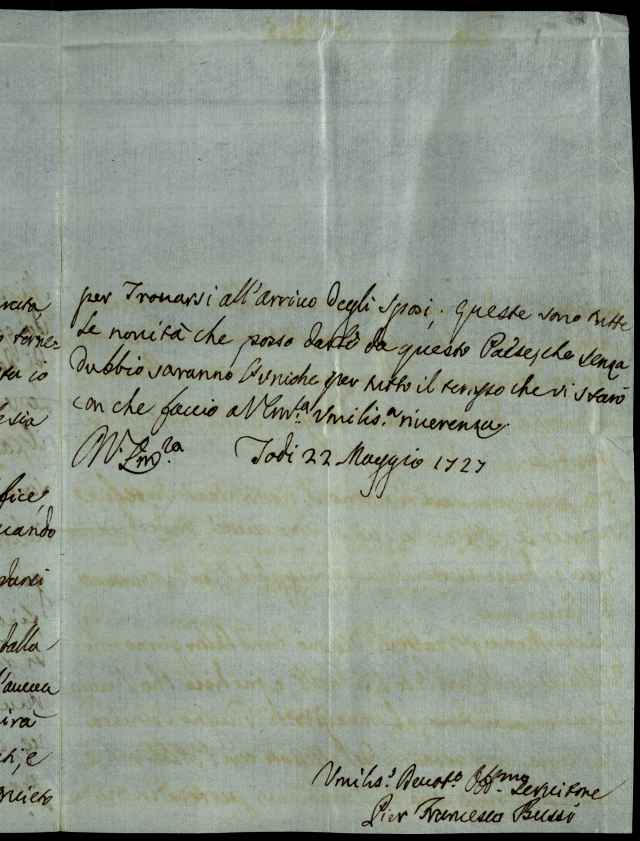 per Trovarsi all'arrivo Degli Sposi. queste sono tutte
Le novità che posso darli da questo Paese, che senza
Dubbio saranno l'uniche per tutto il tempo che vi starò
con che faccio a V. Ill.ma Umilis.a riverenza
Todi 22 Maggio 1727
Umilis.o Devot.o Obb.mo Servitore
Pier Francesco Bussi
tornez
io
fice
uando
dalla
irà